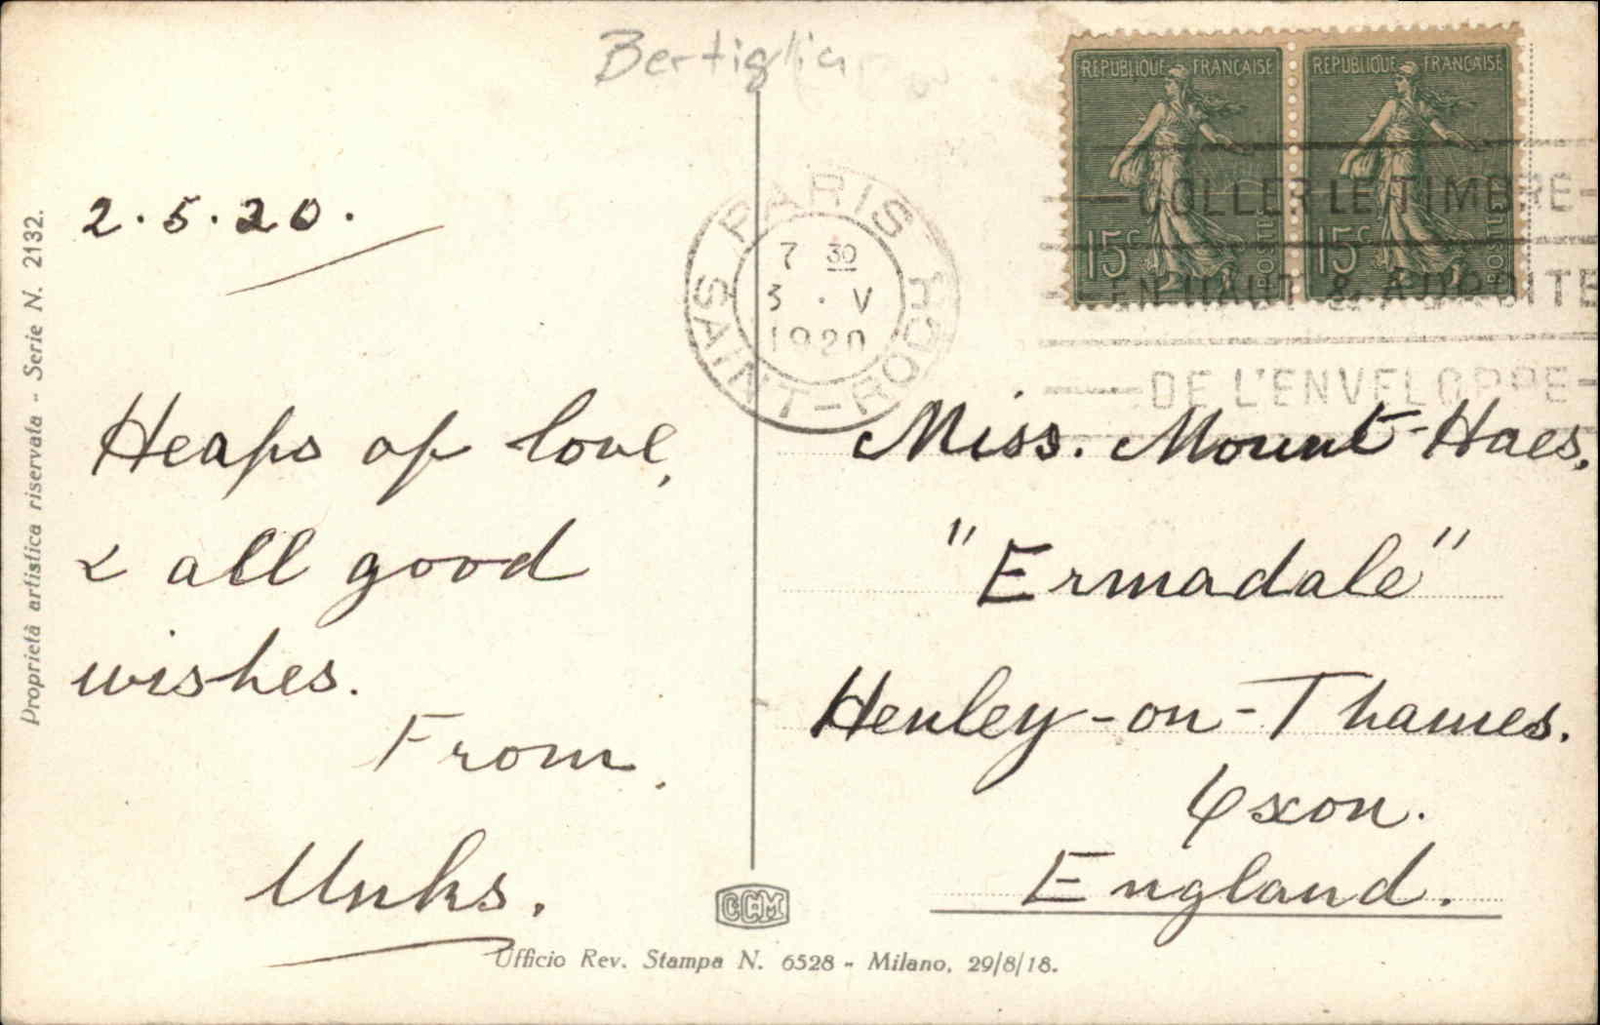 Bertiglia
REPUBLIQUE FRANÇAISE
15c POSTES
REPUBLIQUE FRANÇAISE
15c POSTES
PARIS
SAINT-ROCH
7 30
3 . V
1920
COLLER LE TIMBRE
EN HAUT & A DROITE
DE L'ENVELOPPE
2.5.20.
Heaps of love,
& all good
wishes.
From,
Unks.
Miss. Mount-Haes,
"Ermadale"
Henley-on-Thames.
Oxon.
England.
Proprietà artistica riservata - Serie N. 2132.
CCM
Ufficio Rev. Stampa N. 6528 - Milano, 29/8/18.